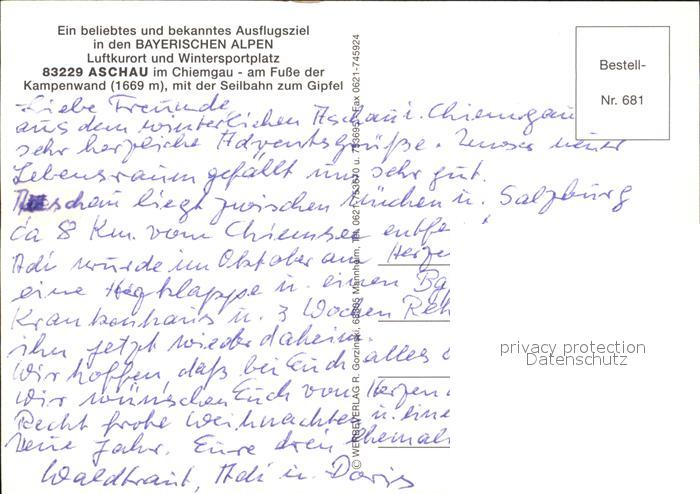 Ein beliebtes und bekanntes Ausflugsziel
in den BAYERISCHEN ALPEN
Luftkurort und Wintersportplatz
83229 ASCHAU im Chiemgau - am Fuße der
Kampenwand (1669 m), mit der Seilbahn zum Gipfel
Bestell-
Nr. 681
Liebe Freunde
aus dem winterlichen Aschau i. Chiemgau
sehr herzliche Adventsgrüße. Unser neuer
Lebensraum gefällt uns sehr gut.
Aschau liegt zwischen München u. Salzburg
ca 8 Km. vom Chiemsee entfe
Adi wurde im Oktober am Herze
eine Herzklappe u. einen
Krankenhaus u. 3 Wochen Reh
ihn jetzt wieder daheim.
Wir hoffen, daß bei Euch alles
Wir wünschen Euch vom Herzen
Recht frohe Weihnachten u. eine
neue Jahr. Eure drei Ehemal
Waldtraut, Adi u. Doris
© WERBEVERLAG R. Gorzinski, Mannheim, Fax 0621-745924
privacy protection
Datenschutz